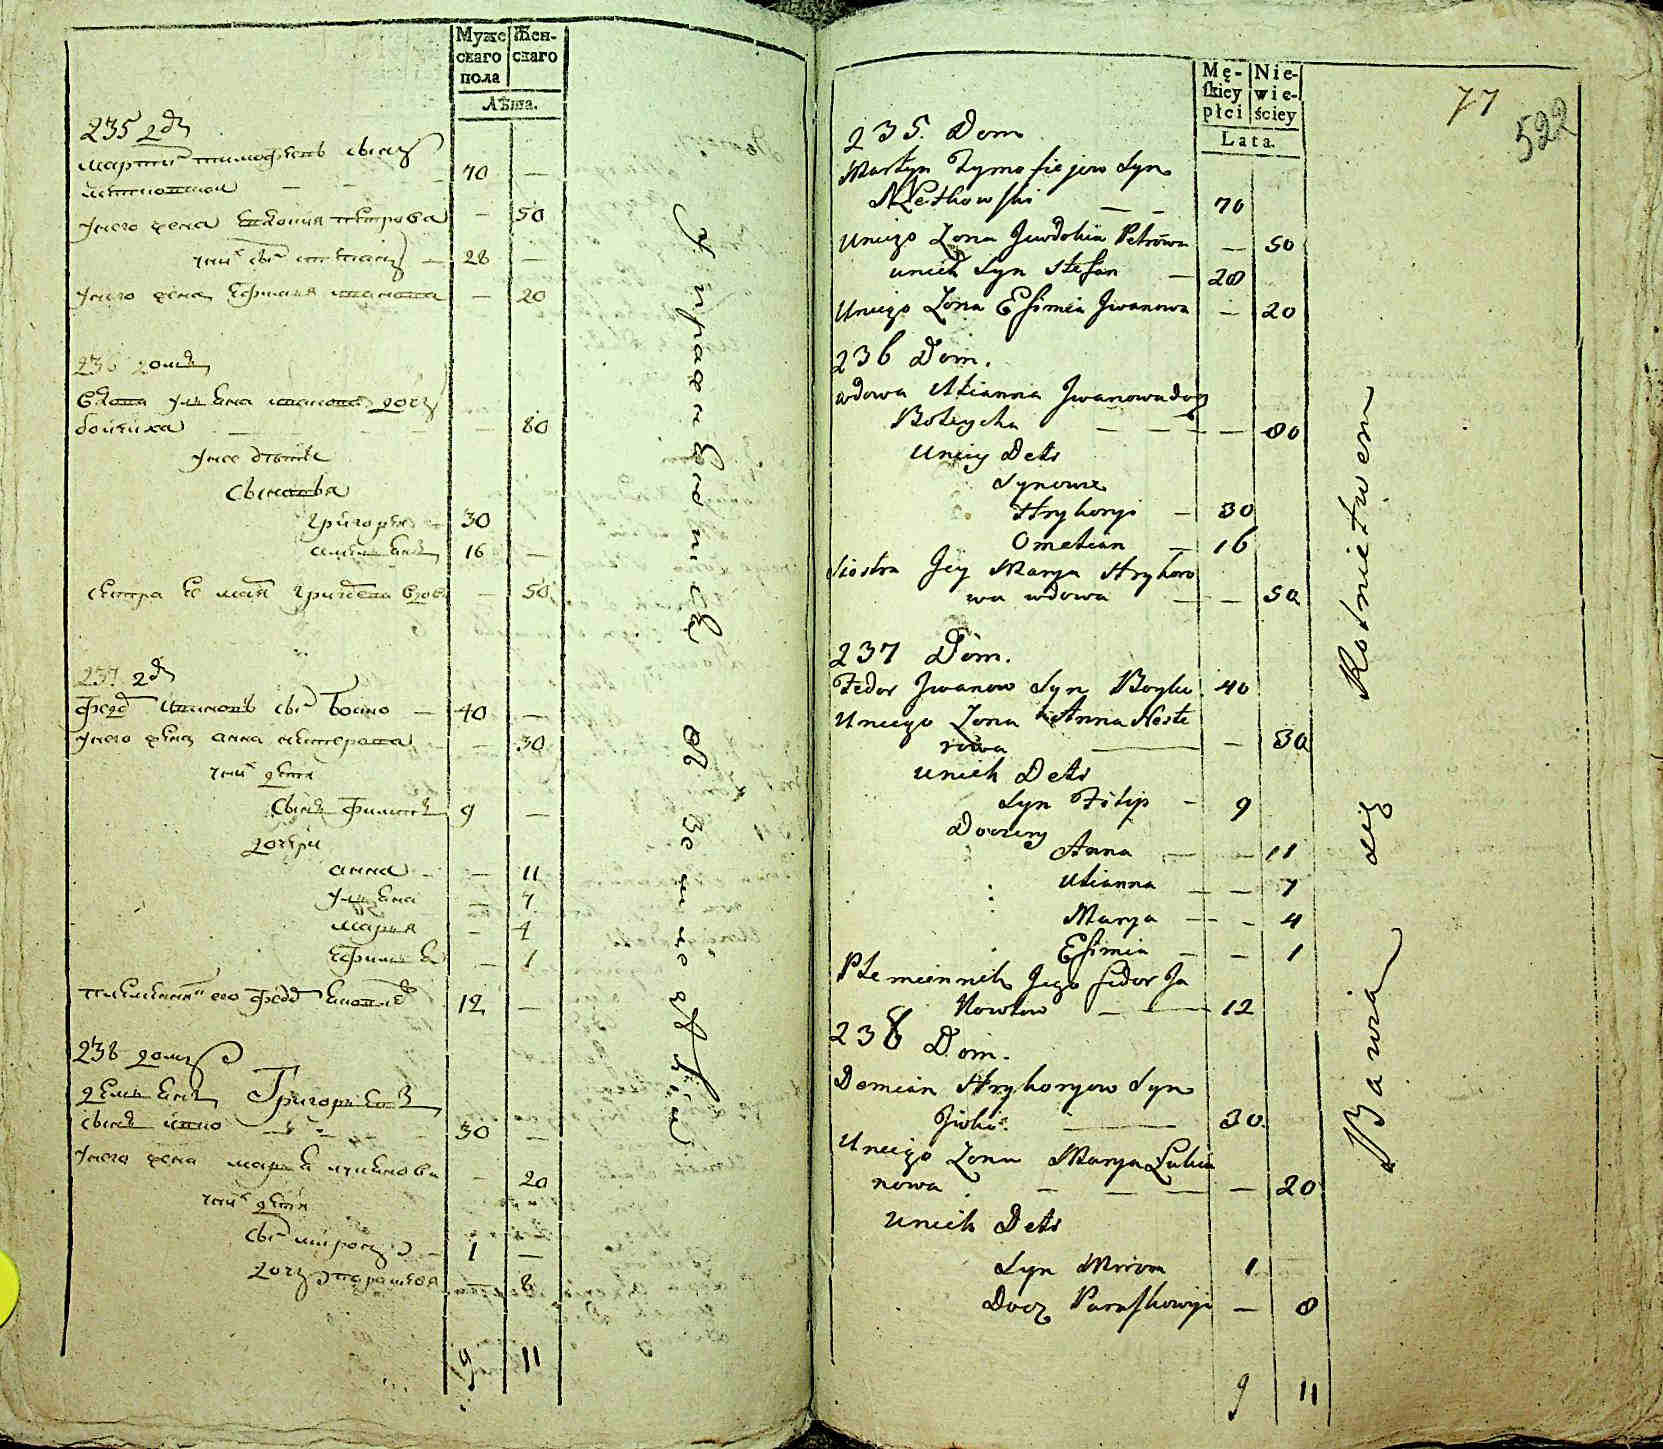 Муже
скаго
пола
Жен-
скаго
Лѣта.
235 дд
мартин тимофеевъ сынъ
70 —
унего жена евдокия петрова — 50
уних сын степанъ — 28 —
унего жена ефимия иванова — 20
236 домъ
вдова улияна иванова дочь
бойчиха — 80
унее дѣти
сыновья
григорей — 30
емельянъ 16 —
сестра ее мария григорева вдова — 50
237 дд
федор ивановъ сын бойко — 40 —
унего жена анна нестерова — 30
уних дети
сынъ филипъ 9 —
дочери
анна — 11
улияна — 7
марья — 4
ефимия — 1
племянник его федор 12 —
238 домъ
демьянъ Григорьевъ
сынъ 30 —
унего жена марья лукинова — 20
уних дети
сын миронъ — 1 —
дочь парасковя — 8
9 11
Упражняются
в земледѣлiи
Mę-
skiey
płci
Nie-
wie-
ściey
Lata.
77
522
235. Dom
Martyn Tymofiejew Syn
70
Uniego Zona Jewdokia Petrowa — 50
unich Syn Stefan — 28
Uniego Zona Efimia Jwanowa — 20
236 Dom.
wdowa Ulianna Jwanowa docz
— — — — 80
Uniey Deti
Synowie
Hryhoryi — 30
Omelian — 16
Siostra Jey Marya Hryhoro
wa wdowa — — 50
237 Dom.
Fedor Jwanow Syn Boyko 40
Uniego Zona Anna Neste
rowa — — 30
unich Deti
Syn Filip — 9
Doczery
Anna — — 11
Ulianna — — 7
Marya — — 4
Efimia — — 1
Plemiennik Jego Fedor Ja
kowlow — — 12
238 Dom.
Demian Hryhoryow Syn
— 30
Uniego Zona Marya Luka
nowa — — — — 20
unich Deti
Syn Miron 1
Docz Paraskowija — 8
9 11
Bawią się Rolnictwem